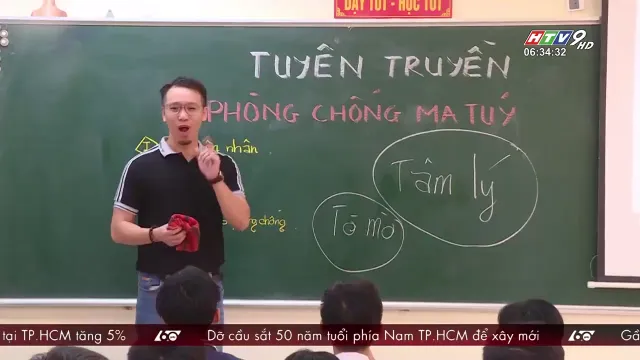 DẠY TỐT - HỌC TỐT
HTV9 HD
06:34:32
TUYÊN TRUYỀN
PHÒNG CHỐNG MA TUÝ
I
nhân
Tâm lý
Tò mò
chống
tại TP.HCM tăng 5%
60
Dỡ cầu sắt 50 năm tuổi phía Nam TP.HCM để xây mới
60